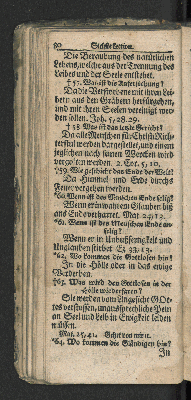 80 Siebste Lection.
Die Beraubung des natürlichen
Lebens, welche aus der Trennung des
Leibes und der Seele entstehet.
† 57. Was ist die Auferstehung?
Da die Verstorbene mit ihren Lei-
bern aus den Gräbern herfürgehen,
und mit ihren Seelen vereiniget wer-
den sollen. Joh. 5, 28. 29.
† 58 Was ist das letzte Gericht?
Da alle Menschen für Christi Rich-
terstul werden dargestellet, und einem
jeglichen nach seinen Wercken wird
vergolten werden. 2. Cor. 5, 10.
† 59. Wie geschiehet das Ende der Welt?
Da Himmel und Erde durchs
Feuer vergehen werden.
60. Wenn ist des Menschen Ende selig?
Wenn er im wahren Glauben biß
ans Ende verharret. Mat. 24, 13.
61. Wenn ist des Menschen Ende un-
selig?
Wenn er in Unbußfertigkeit und
Unglauben stirbet
62. Wo kommen die Gottlosen hin?
In die Hölle oder in das ewige
Verderben.
† 63. Was wird den Gottlosen in der
Hölle wiederfahren?
Sie werden vom Angesicht GOt-
tes verstossen, unaussprechliche Pein
an Seel und Leib in Ewigkeit leiden
müssen.
Mat. 25, 41.
64. Wo kommen die Gläubigen hin?
In